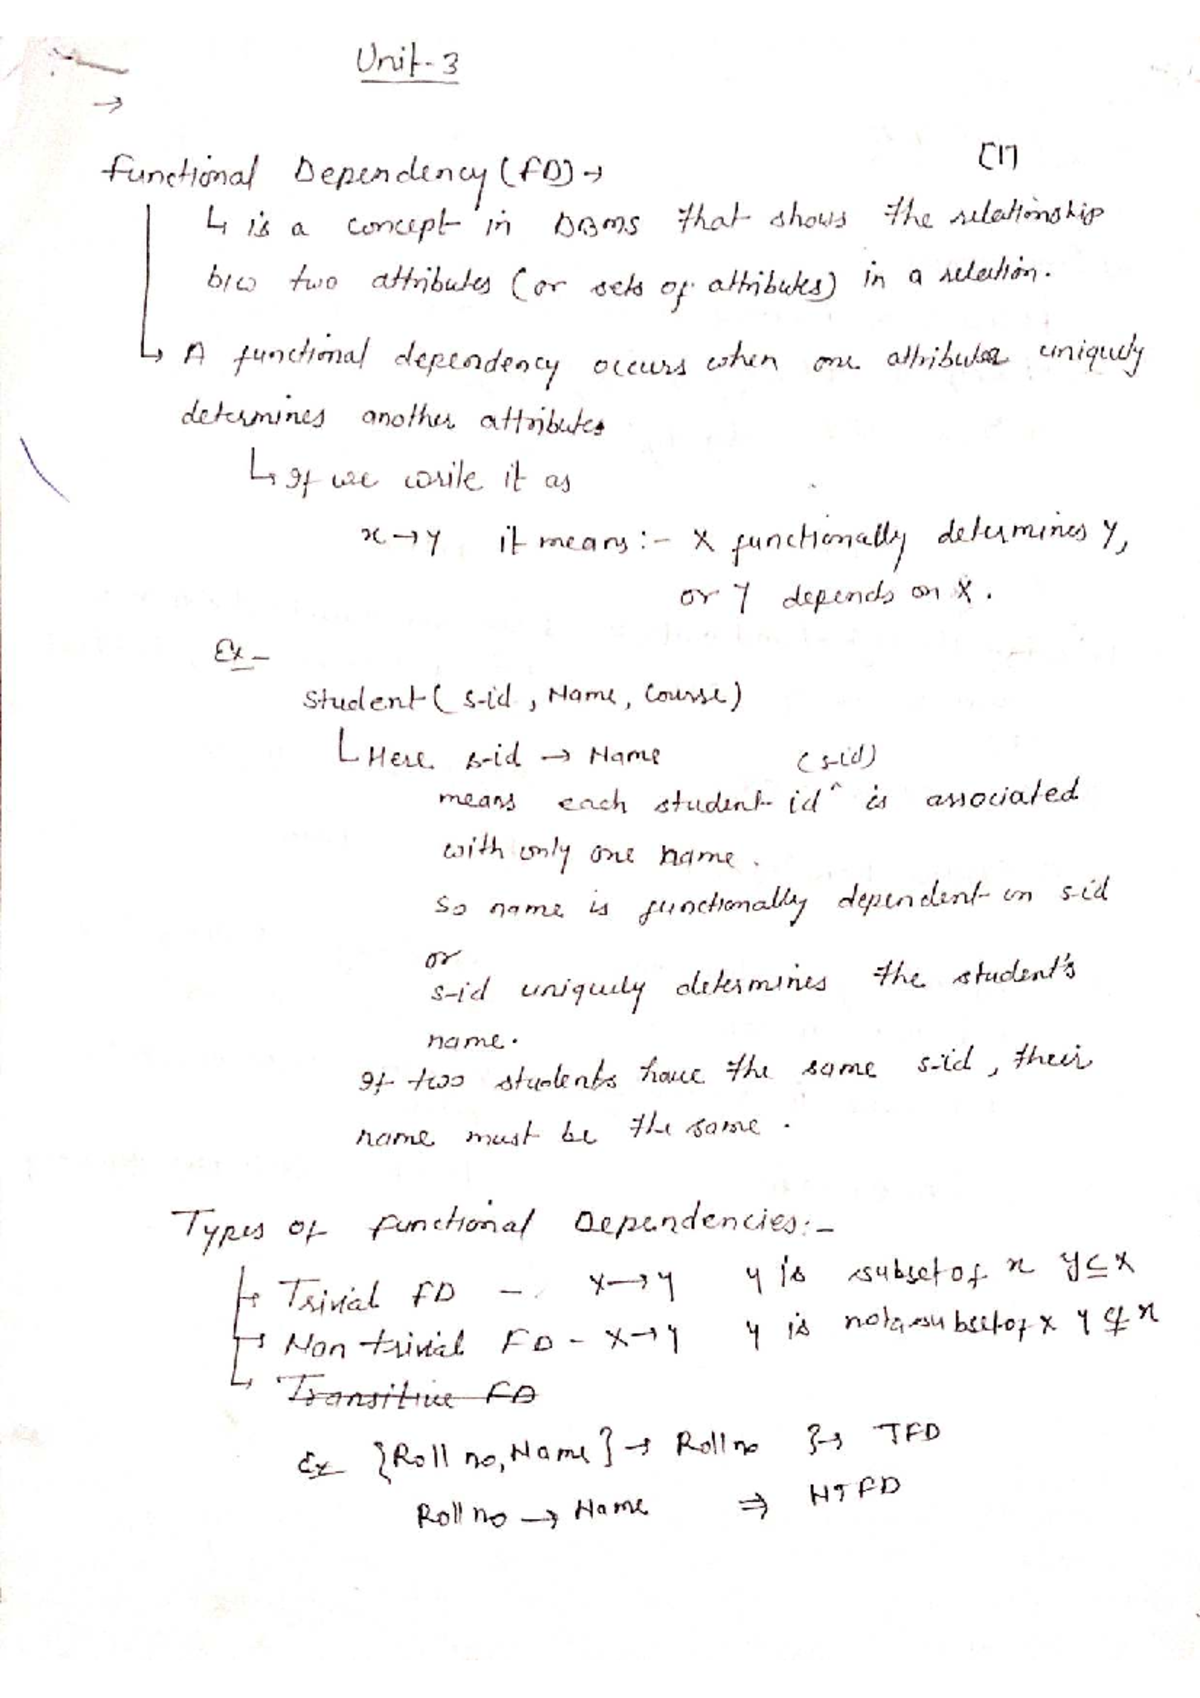 Unit-3
→
[1]
Functional Dependency (FD) →
↳ is a concept in DBMS that shows the relationship
b/w two attributes (or sets of attributes) in a relation.
↳ A functional dependency occurs when one attribute uniquely
determines another attributes
↳ If we write it as
x → y it means :- X functionally determines Y,
or Y depends on X.
Ex -
Student ( s-id , Name, Course)
Here s-id → Name
means each student id ^ (s-id) is associated
with only one name.
So name is functionally dependent on s-id
or
s-id uniquely determines the student's
name.
If two students have the same s-id, their
name must be the same.
Types of Functional Dependencies:-
↳ Trivial FD - X → y y is subset of x y ⊆ X
↳ Non trivial FD - X → y y is not a subset of x y ⊄ x
↳ ~~Transitive FD~~
Ex {Roll no, Name } → Roll no }→ TFD
Roll no → Name ⇒ NTFD